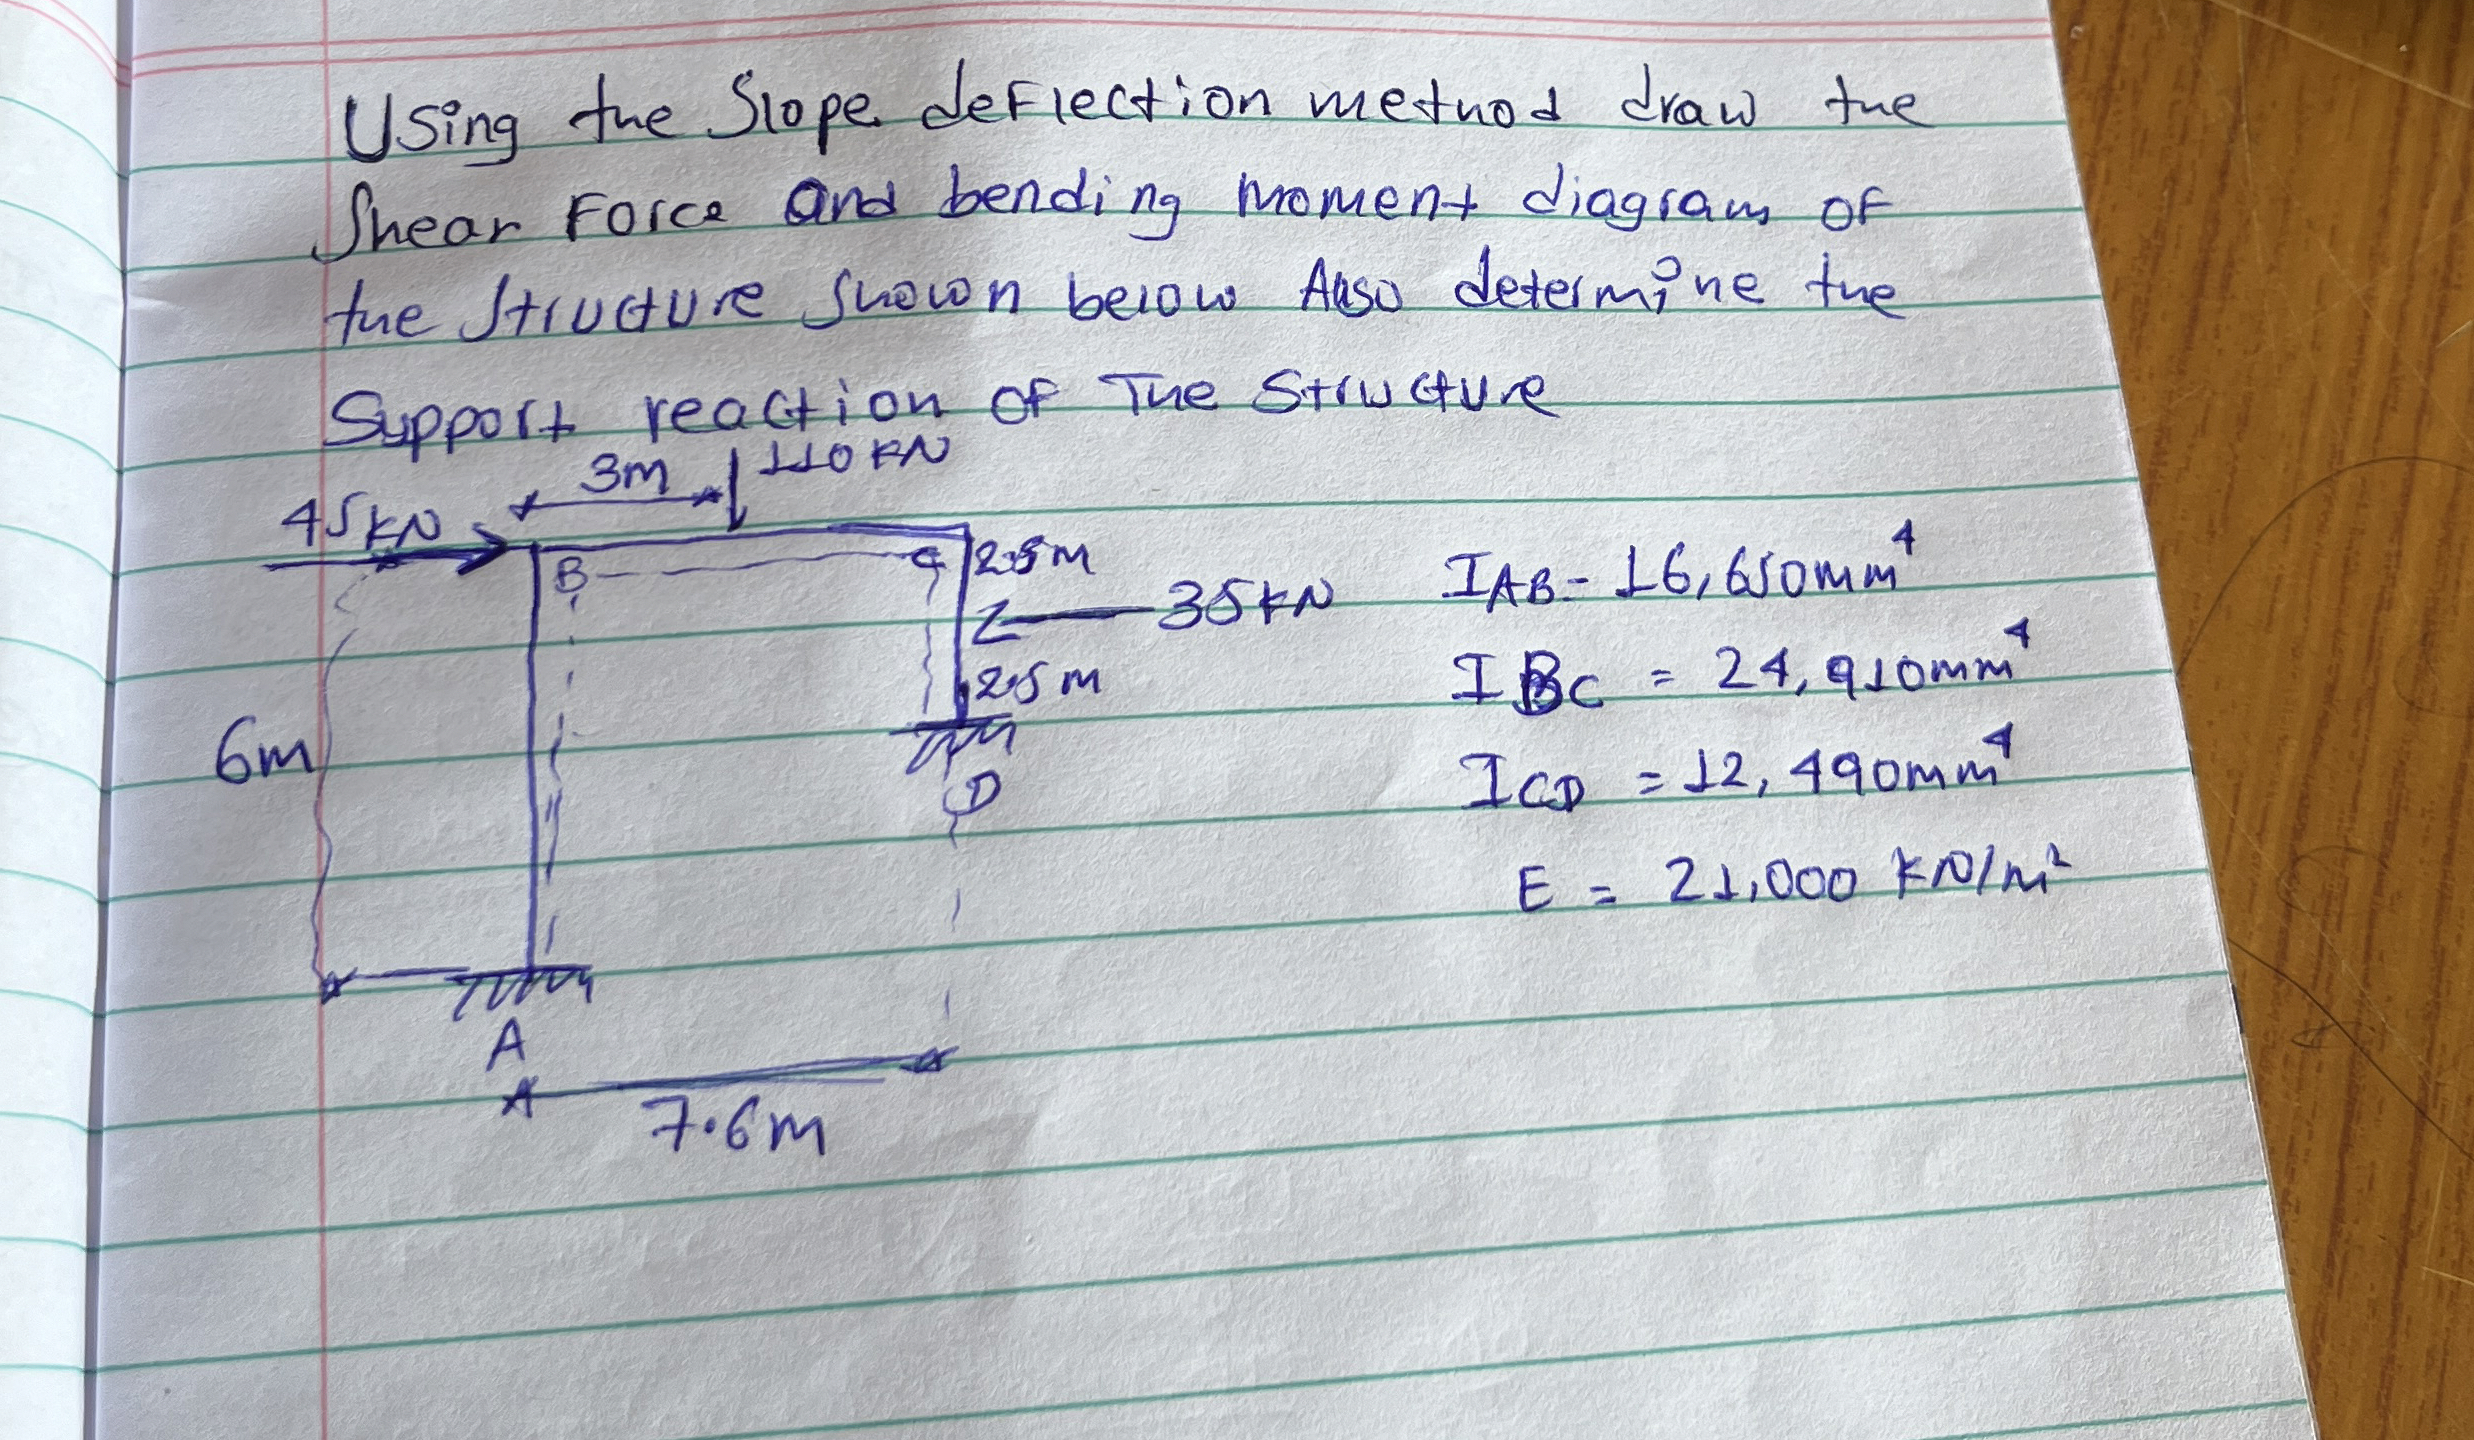 Using the Slope deflection method draw the
Shear Force and bending moment diagram of
the Structure shown below Also determine the
Support reaction of The Structure
3m
110 KN
45 KN
B
C
2.5m
35 KN
2.5 m
D
6m
A
7.6m
IAB = 16,650mm⁴
IBC = 24,910mm⁴
ICD = 12,490mm⁴
E = 21,000 KN/m²